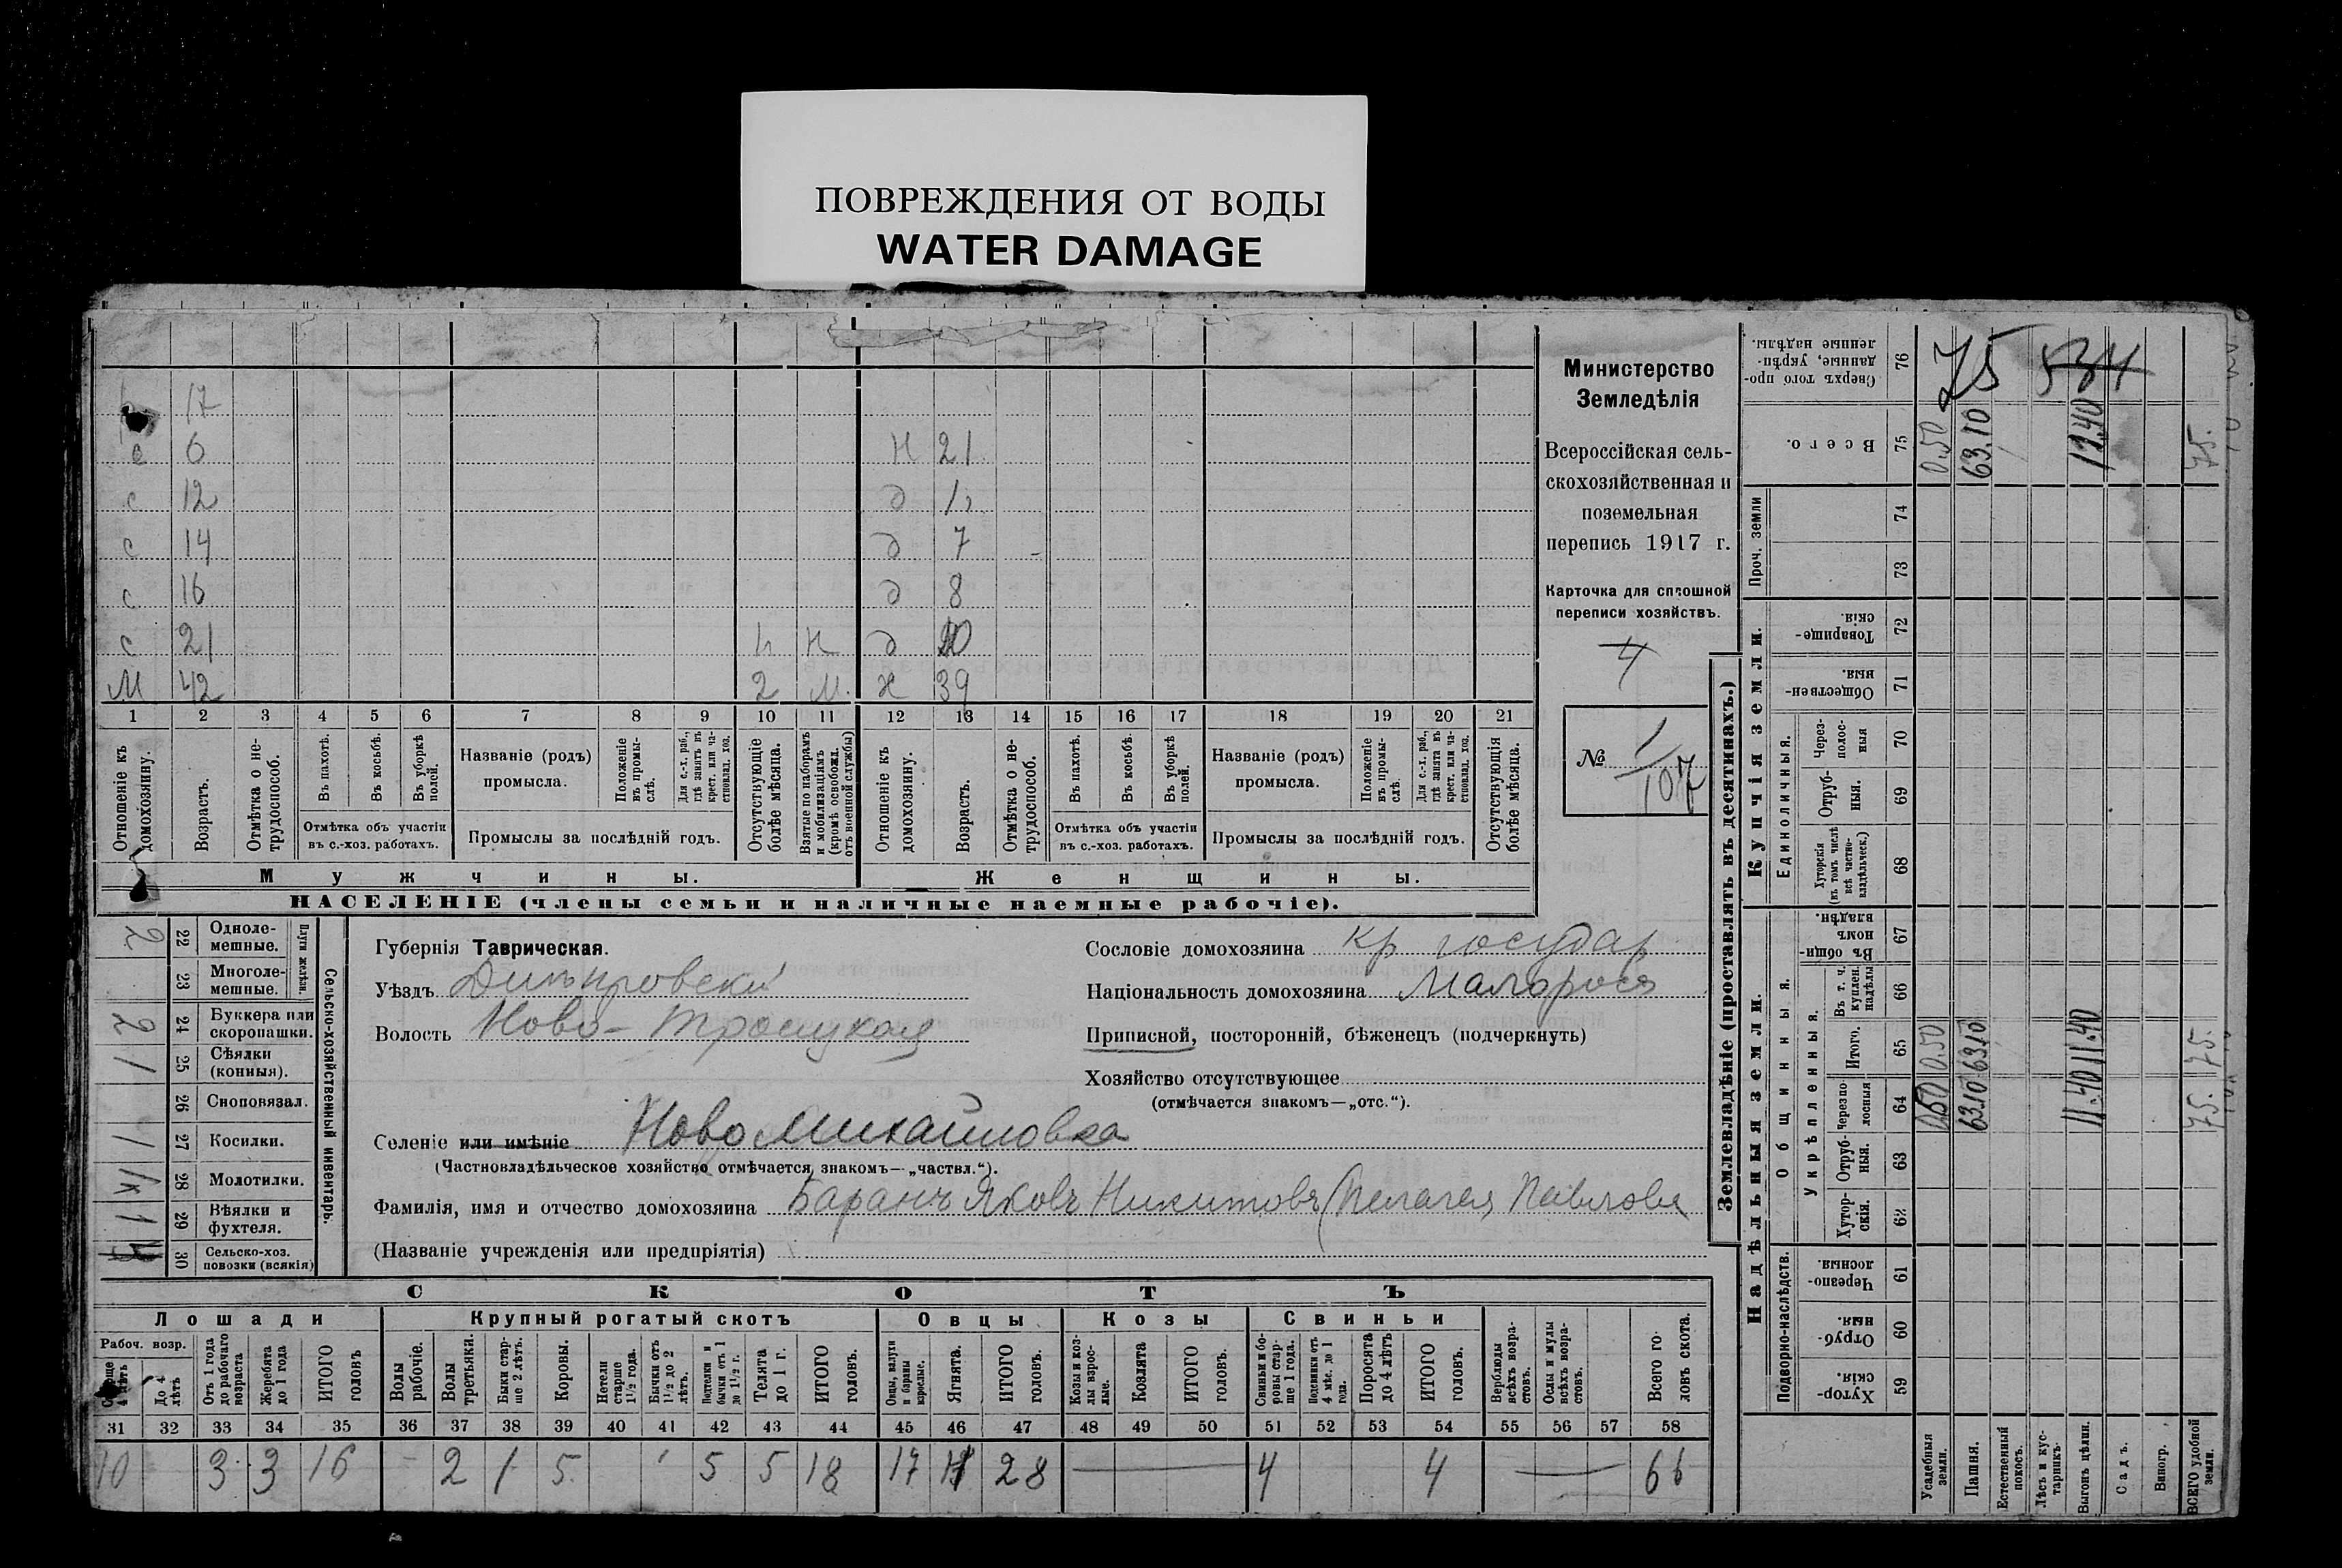 ПОВРЕЖДЕНИЯ ОТ ВОДЫ
WATER DAMAGE
17
с 6 Н 21
с 12 д
с 14 д 7
с 16 д 8
с 21 н д
М 42 2 М. ж 39
1 2 3 4 5 6 7 8 9 10 11 12 13 14 15 16 17 18 19 20 21
Отношеніе къ домохозяину.
Возрастъ.
Отмѣтка о нетрудоспособ.
Въ пахотѣ.
Въ косьбѣ.
Въ уборкѣ полей.
Отмѣтка объ участіи въ с.-хоз. работахъ.
Названіе (родъ) промысла.
Положеніе въ промыслѣ.
Для с.-х. раб., гдѣ занятъ въ крест. или частновлад. хоз.
Промыслы за послѣдній годъ.
Отсутствующіе болѣе мѣсяца.
Взятые по наборамъ и мобилизаціямъ (кромѣ освобожд. отъ военной службы)
Отношеніе къ домохозяину.
Возрастъ.
Отмѣтка о нетрудоспособ.
Въ пахотѣ.
Въ косьбѣ.
Въ уборкѣ полей.
Отмѣтка объ участіи въ с.-хоз. работахъ.
Названіе (родъ) промысла.
Положеніе въ промыслѣ.
Для с.-х. раб., гдѣ занята въ крест. или частновлад. хоз.
Промыслы за послѣдній годъ.
Отсутствующія болѣе мѣсяца.
Мужчины.
Женщины.
НАСЕЛЕНІЕ (члены семьи и наличные наемные рабочіе).
Министерство
Земледѣлія
Всероссійская сель-
скохозяйственная и
поземельная
перепись 1917 г.
Карточка для сплошной
переписи хозяйствъ.
4
№ 1/107
Губернія Таврическая.
Уѣздъ Днѣпровскій
Волость Ново-Троицкая
Селеніе или имѣніе Ново Михайловка
(Частновладѣльческое хозяйство отмѣчается знакомъ—„частвл.“).
Фамилія, имя и отчество домохозяина Баранъ Яковъ Никитовъ (Пелагея Павлова
(Названіе учрежденія или предпріятія)
Сословіе домохозяина кр государ
Національность домохозяина Малоросъ
Приписной, посторонній, бѣженецъ (подчеркнуть)
Хозяйство отсутствующее
(отмѣчается знакомъ—„отс.“).
Сельско-хозяйственный инвентарь.
Плуги желѣзн.
2 22 Одноле-мешные.
23 Многоле-мешные.
2 24 Буккера или скоропашки.
1 25 Сѣялки (конныя).
26 Сноповязал.
1 27 Косилки.
28 Молотилки.
1 29 Вѣялки и фухтеля.
30 Сельско-хоз. повозки (всякія)
СКОТЪ
Лошади
Крупный рогатый скотъ
Овцы
Козы
Свиньи
Рабоч. возр.
4 лѣтъ
До 4 лѣтъ
Отъ 1 года до рабочаго возраста
Жеребята до 1 года
ИТОГО головъ
Волы рабочіе.
Волы третьяки.
Быки старше 2 лѣтъ.
Коровы.
Нетели старше 1½ года.
Бычки отъ 1½ до 2 лѣтъ.
Подтелки и бычки отъ 1 до 1½ г.
Телята до 1 г.
ИТОГО головъ.
Овцы, валухи и бараны взрослые.
Ягнята.
ИТОГО головъ.
Козы и козлы взрослые.
Козлята
ИТОГО головъ.
Свиньи и боровы старше 1 года.
Подсвинки отъ 4 мѣс. до 1 года.
Поросята до 4 лѣтъ
ИТОГО головъ.
Верблюды всѣхъ возрастовъ.
Ослы и мулы всѣхъ возрастовъ.
Всего головъ скота.
31 32 33 34 35 36 37 38 39 40 41 42 43 44 45 46 47 48 49 50 51 52 53 54 55 56 57 58
10 3 3 16 - 2 1 5 5 5 18 17 28 — 4 4 — 66
Землевладѣніе (проставлять въ десятинахъ.)
Надѣльныя земли.
Купчія земли.
Проч. земли
Подворно-наслѣдств.
Общинныя.
Укрѣпленныя.
Единоличныя.
Сверхъ того проданные, укрѣпленные надѣлы. 76
Всего. 75
74
73
Товарищескія. 72
Общественныя. 71
Черезполосныя 70
Отрубныя. 69
Хуторскія (въ томъ числѣ всѣ частновладѣльческ.) 68
Въ общиномъ владѣн. 67
Въ т. ч. куплен. надѣлы 66
Итого. 65
Черезполосныя 64
Отрубныя. 63
Хуторскія. 62
Черезполосныя 61
Отрубныя. 60
Хуторскія. 59
Усадебныя земли.
Пашня.
Естественный покосъ.
Лѣсъ и кустарникъ.
Выгонъ цѣлин.
Садъ.
Виногр.
ВСЕГО удобной земли.
75 534
0.50 63.10 11.40 75.
0.50 63.10 11.40 75.
0.50 63.10 11.40 75.